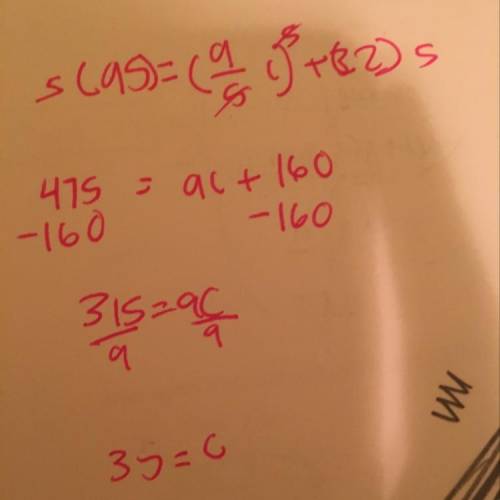 5(95)=(9/5 C)5+(32)5
475 = 9C + 160
-160 -160
315=9C
9 9
35=C